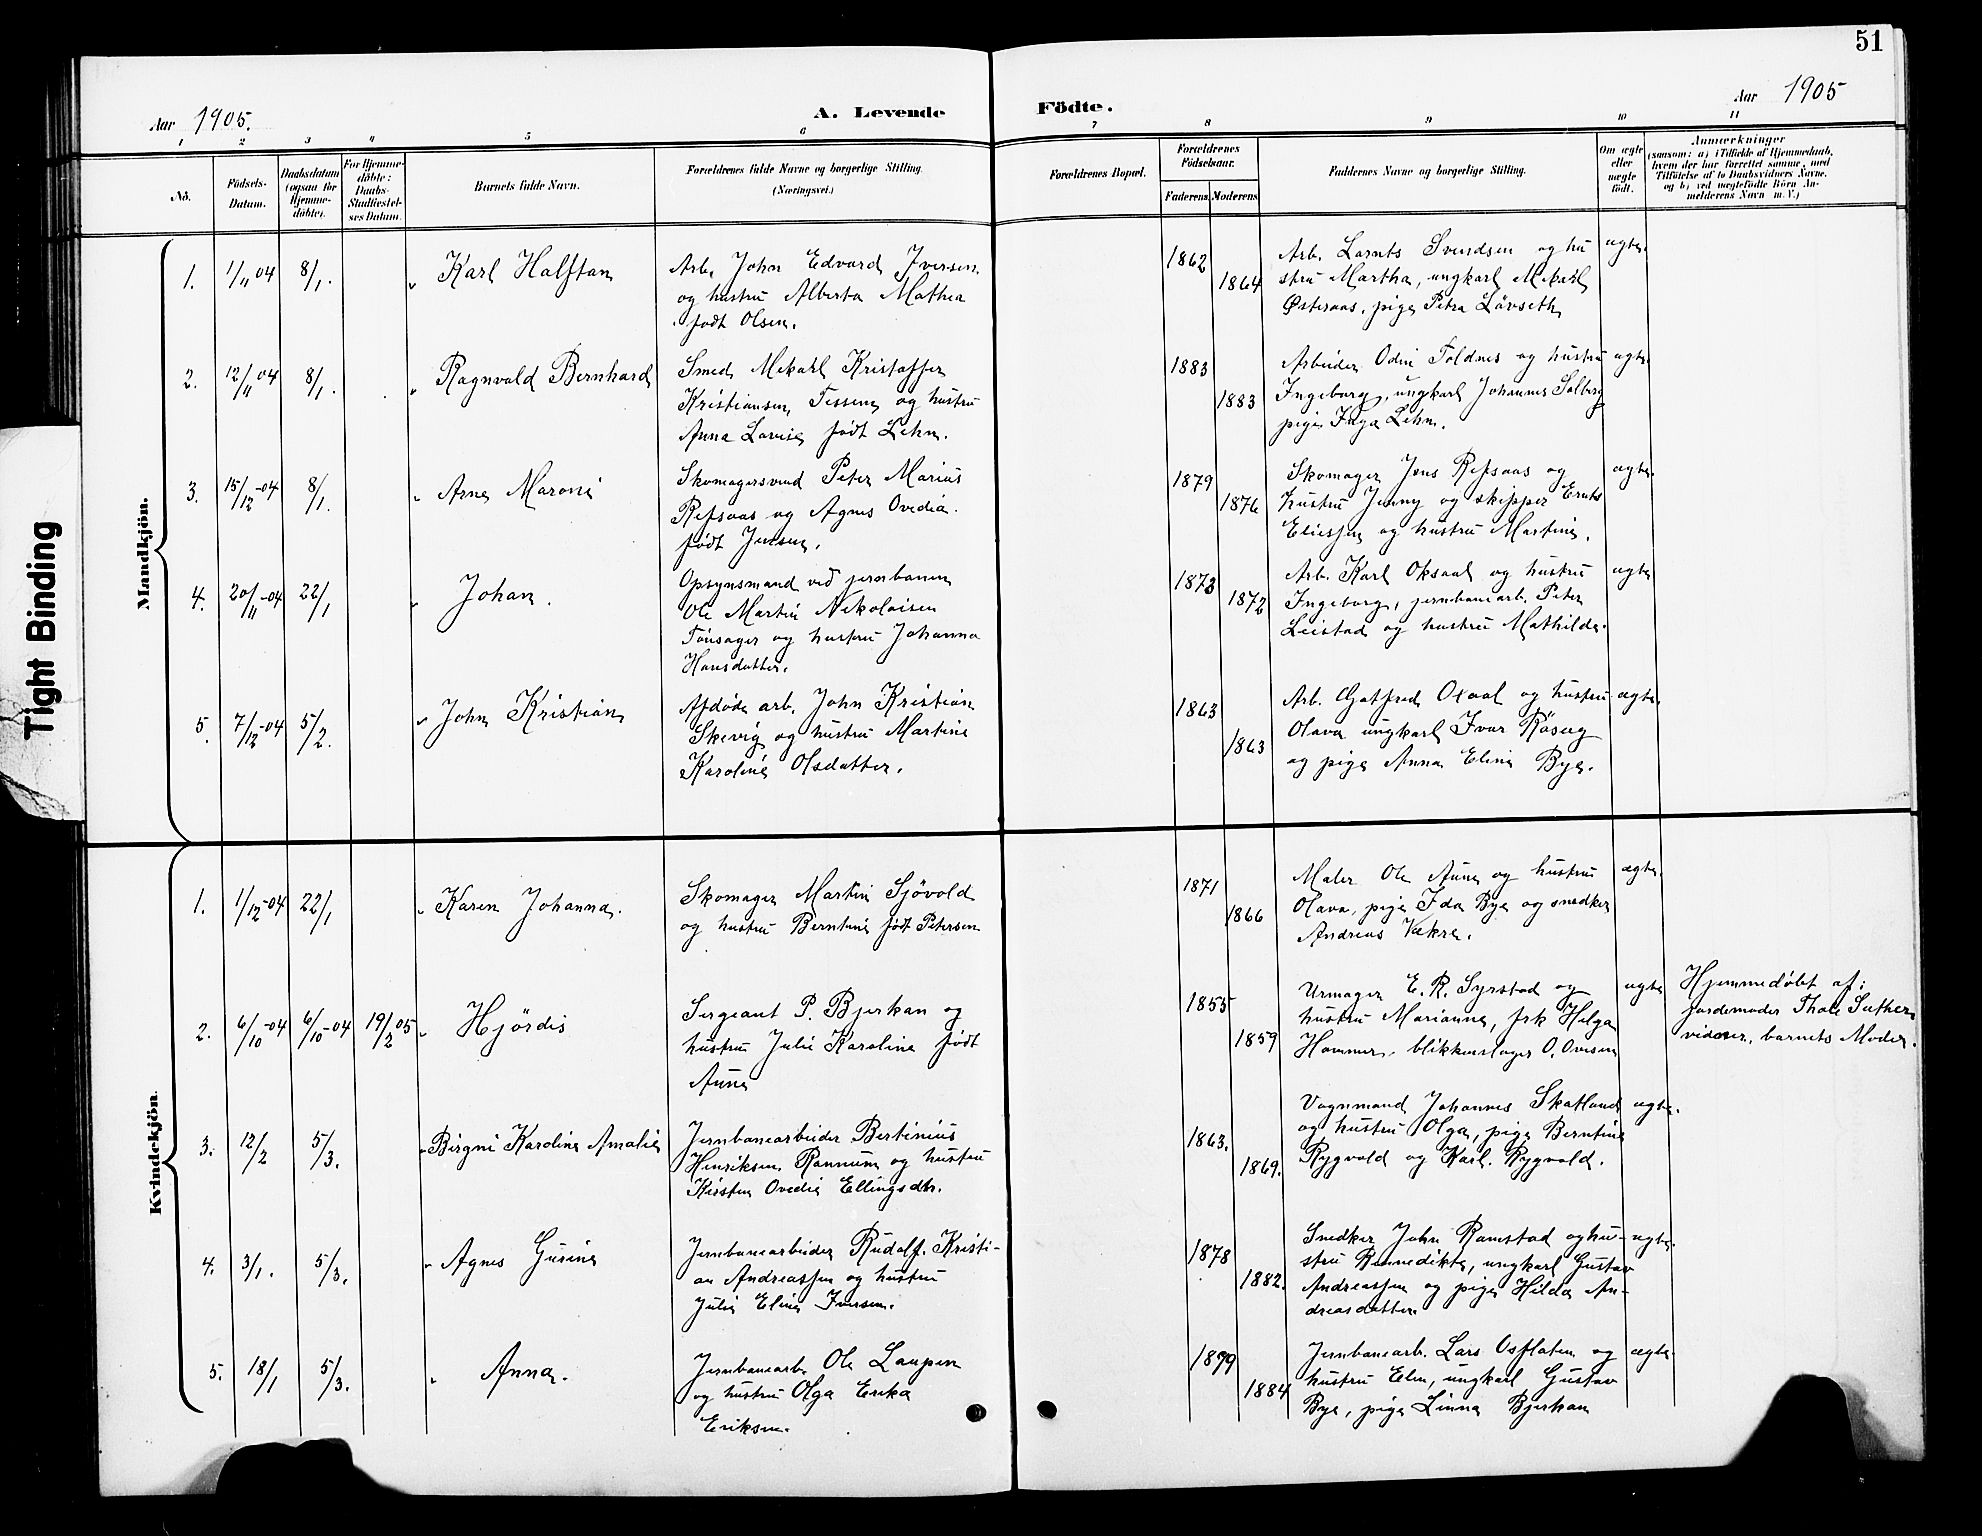 51
Aar 1905.
A. Levende
Födte.
Aar 1905
1 2 3 4 5 6 7 8 9 10 11
No.
Födsels-
Datum.
Daabsdatum
(ogsaa for
Hjemme-
döbte).
For Hjemme-
döbte:
Daabs-
Stadfæstel-
ses Datum.
Barnets fulde Navn.
Forældrenes fulde Navne og borgerlige Stilling
(Næringsvei.)
Forældrenes Bopæl.
Forældrenes
Födselsaar.
Faderens. Moderens.
Faddernes Navne og borgerlige Stilling.
Om ægte
eller
uægte
födt.
Anmærkninger
(saasom: a) i Tilfælde af Hjemmedaab,
hvem der har forrettet samme, med
Tilföielse af to Daabsvidners Navne,
og b) ved uægtefödte Börn An-
melderens Navn m. V.)
Mandkjön.
1. 1/11 04 8/1. " Karl Halftan
Arb. John Edvard Iversen
og hustru Alberta Mathea
født Olsen.
1862
1864
Arb. Svendsen og hu
stru Martha, ungkarl Mekael
Østeraas, pige Petra Lövseth
ægte.
2. 12/11 04 8/1. " Ragnvald Bernhard
Smed Mekael Kristoffer
Kristiansen Tessem og hustru
Anna Lovise født Lehn.
1883
1883
Arbeider Odin Foldnes og hustru
Ingeborg, ungkarl Johannes Solberg
pige Inga Lehn.
ægte.
3. 15/12-04 8/1. " Arne Maroni
Skomagersvend Peter Marius
Refsaas og Agnes Ovedia
født Jensen.
1879
1876
Skomager Jens Refsaas og
hustru Jenny og skipper
Eliessen og hustru Martine.
ægte.
4. 20/11-04 22/1 " Johan.
Opsynsmand ved jernbanen
Ole Martin Nikolaisen
Tönsager og hustru Johanna
Hansdatter.
1873
1872
Arb. Karl Oksaal og hustru
Ingeborg, jernbanearb. Peter
Leistad og hustru Mathilde.
ægte
5. 7/12-04 5/2. " John Kristian
Afdøde arb. John Kristian
Skevig og hustru Martine
Karoline Olsdatter.
1863
1863
Arb. Gotfred Oxaal og hustru
Olava ungkarl Ivar Röseg
og pige Anna Eline Bye.
ægte.
Kvindekjön.
1. 1/12-04 22/1 " Karen Johanna.
Skomager Martin Sjövold
og hustru Berntine født Petersen
1871
1866
Maler Ole Aune og hustru
Olava, pige Ida Bye og snedker
Andreas Vekre.
ægte.
2. 6/10-04 6/10-04 19/2 05 " Hjördis
Sergeant P. Bjerkan og
hustru Julie Karoline født
Aune
1855
1859
Urmager E. R. Syrstad og
hustru Marianne, frk Helga
Hammer, blikkenslager O. Ovesen
ægte
Hjemmedøbt af:
jordemoder Thale Suther
vidner, barnets Moder.
3. 12/2 5/3. " Birgni Karoline Amalie
Jernbanearbeider Bertinius
Henriksen Rannum og hustru
Kirsten Ovedie Ellingsdtr.
1863.
1869.
Vognmand Johannes Skatland
og hustru Olga, pige Berntine
Rygvold og Karl Rygvold.
ægte.
4. 3/1. 5/3. " Agnes Gurine
Jernbanearbeider Rudolf Kristi-
an Andreassen og hustru
Julie Eline Iversen.
1878
1882.
Snedker John Ramstad og hu-
stru Bennedikte, ungkarl Gustav
Andreassen og pige Hilda An-
dreasdatter
ægte.
5. 18/1 5/3. " Anna.
Jernbanearb. Ole Laupen
og hustru Olga Erika
Eriksen.
1879
1884
Jernbanearb. Lars Osflaten og
hustru Elen, ungkarl Gustav
Bye, pige Linna Bjerkan
ægte.
Tight Binding